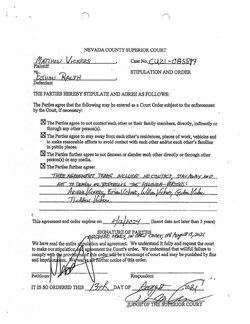 NEVADA COUNTY SUPERIOR COURT
MATTHEW VICKERS
Plaintiff
Case No. CU21-085597
vs.
STIPULATION AND ORDER
ETHAN RALPH
Defendant
THE PARTIES HEREBY STIPULATE AND AGREE AS FOLLOWS:
The Parties agree that the following may be entered as a Court Order subject to the enforcement
by the Court, if necessary:
The Parties agree to not contact each other or their family members, directly, indirectly or
through any other person(s).
The Parties agree to stay away from each other's residences, places of work, vehicles and
to make reasonable efforts to avoid contact with each other and/or each other's families
in public places.
The Parties further agree to not demean or slander each other directly or through other
person(s) or any media.
And the Parties further agree:
THESE AGREEMENT TERMS INCLUDE NO CONTACT, STAY AWAY, AND
NOT TO DEMEAN OR
Vickers,
This agreement and order expires on (insert date not more than 3 years)
SIGNATURE OF PARTIES
We have read the entire stipulation and agreement. We understand it fully and request the court
to make our stipulation and agreement the Court's order. We understand that willful failure to
comply with the provisions of this order will be a contempt of court and may be punished by fine
and imprisonment. We waive all further notice of this order.
Petitioner
IT IS SO ORDERED THIS 13th DAY OF August 2021
JUDGE OF THE SUPERIOR COURT